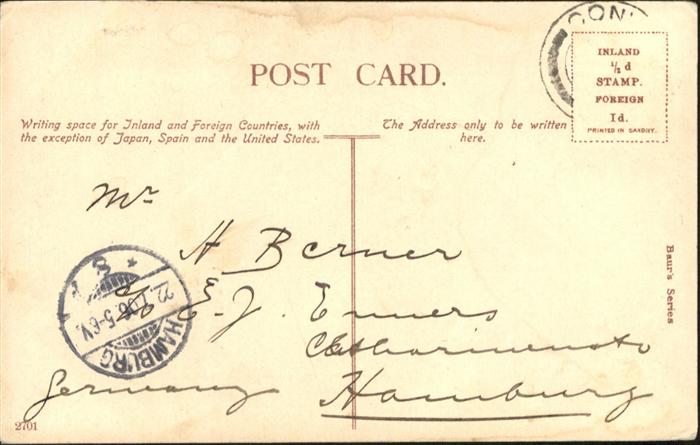 CON
INLAND
½ d
STAMP.
FOREIGN
1d.
PRINTED IN SAXONY.
POST CARD.
Writing space for Inland and Foreign Countries, with
the exception of Japan, Spain and the United States.
The Address only to be written
here.
Mr
H Berner
E. J. Enners
Catharinenstr
Germany Hamburg
HAMBURG
5-6V.
Baur's Series
2701